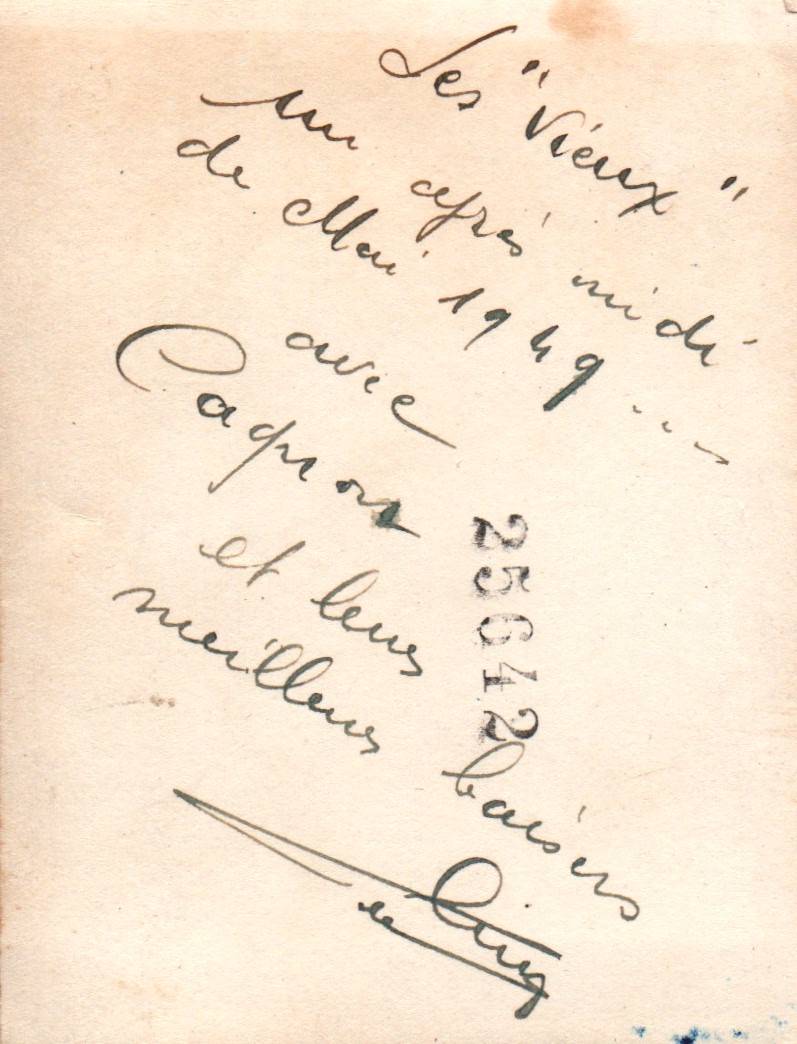 Les "Vieux"
un après midi
de Mai 1949...
avec
et leurs
meilleurs baisers
25642